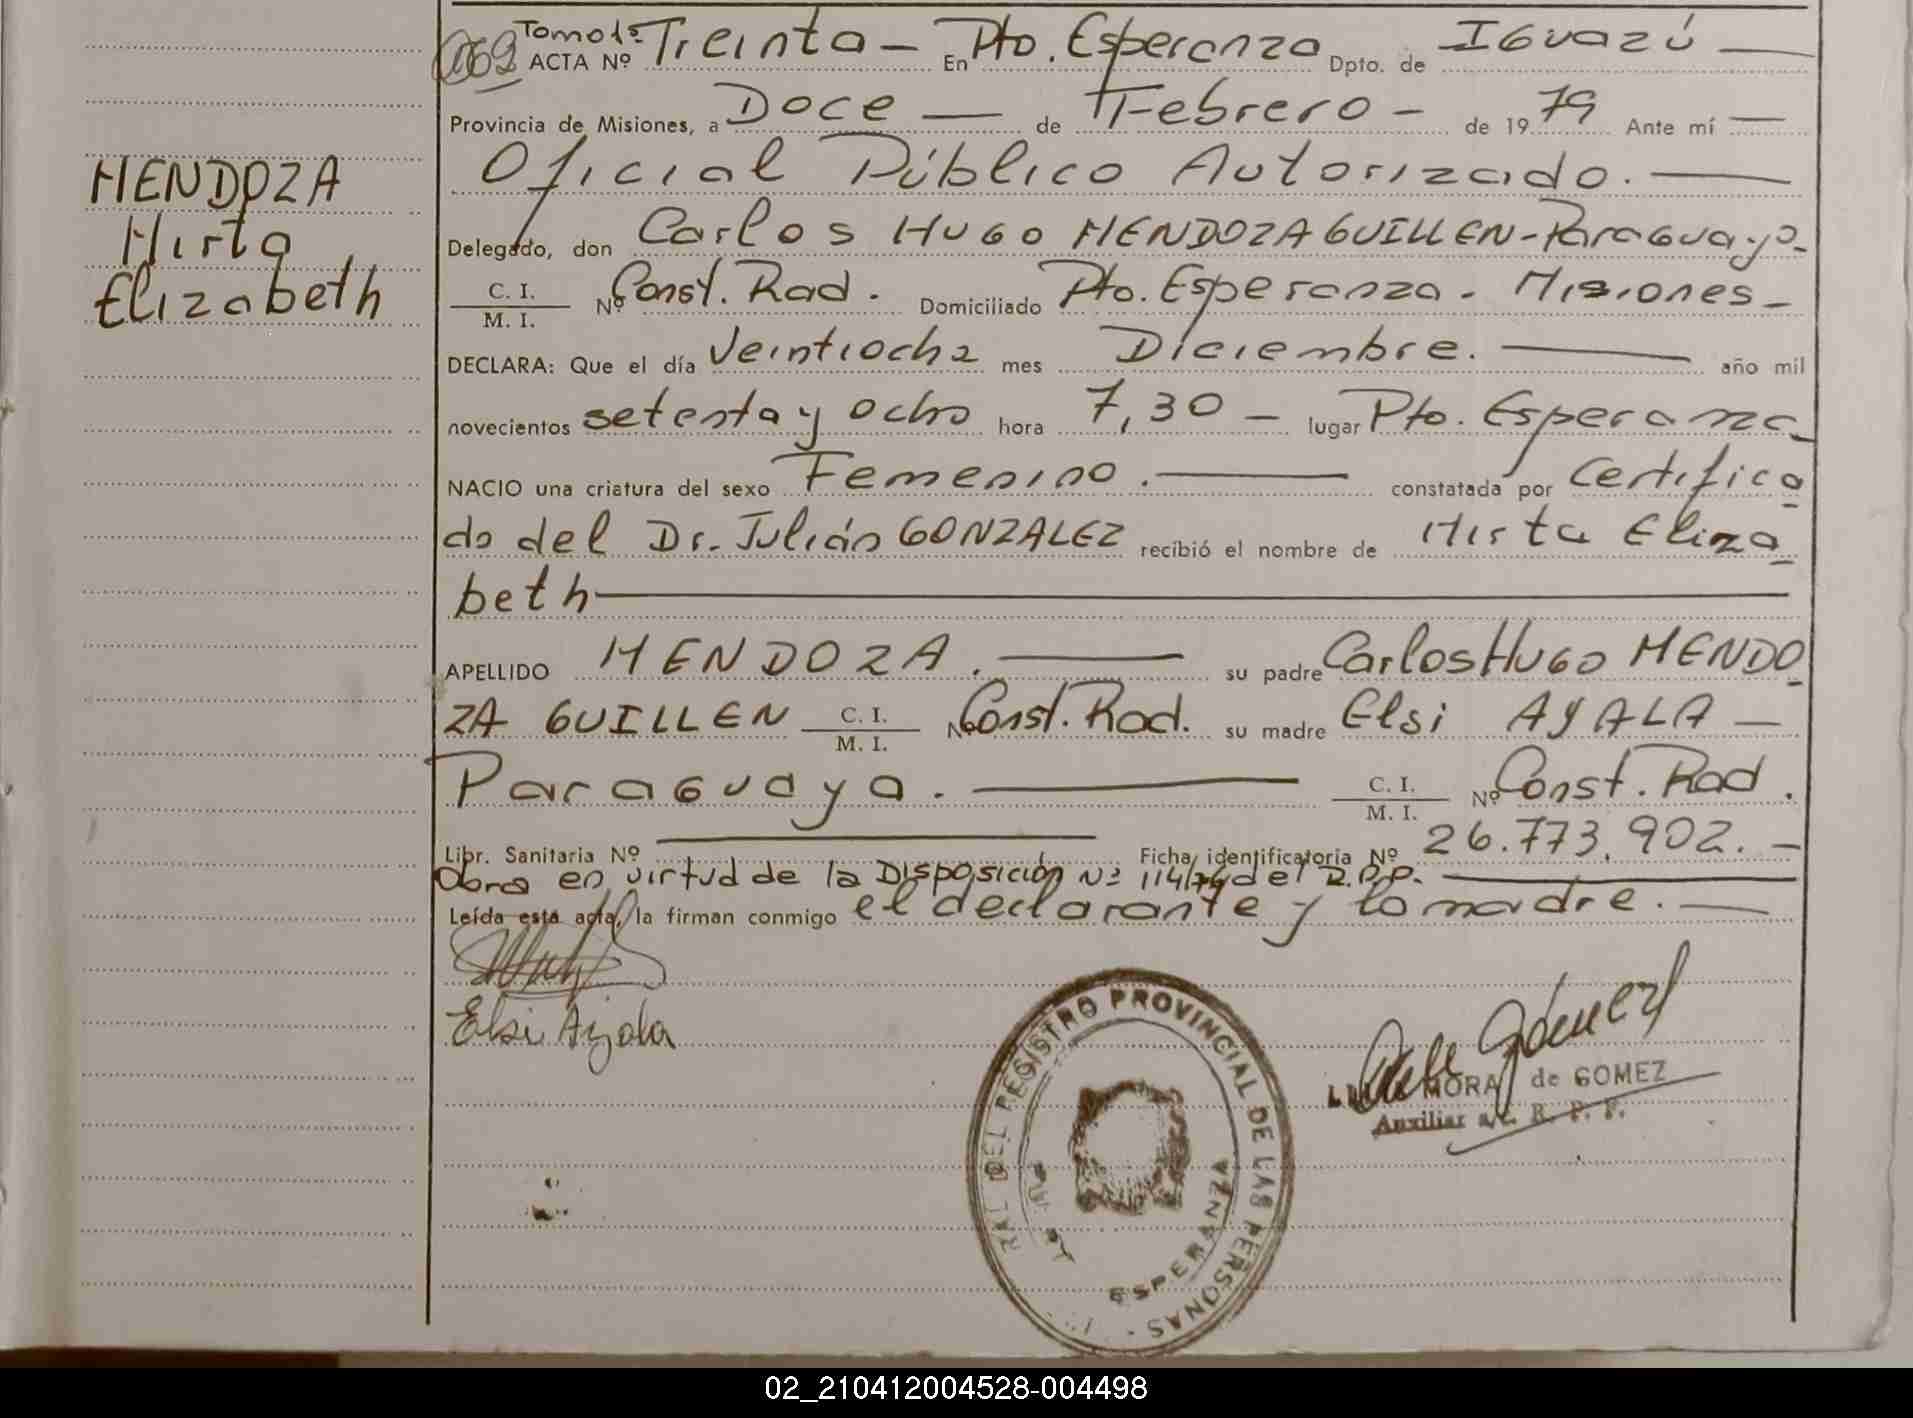 MENDOZA
Mirta
Elizabeth
Tomo 1º
069 ACTA Nº Treinta – En Pto. Esperanza Dpto. de IGuazú —
Provincia de Misiones, a Doce — de Febrero – de 1979 Ante mí —
Oficial Público Autorizado. —
Delegado, don Carlos HuGo MENDOZA GUILLEN-ParaGuayo-
C. I.
M. I. Nº Const. Rad. Domiciliado Pto. Esperanza. Misiones-
DECLARA: Que el día Veintiocho mes Diciembre. — año mil
novecientos setenta y ocho hora 7,30 – lugar Pto. Esperanza
NACIO una criatura del sexo Femenino. — constatada por Certifica
do del Dr. Julián GONZALEZ recibió el nombre de Mirta Eliza
beth —
APELLIDO MENDOZA. — su padre Carlos HuGo MENDO
ZA GUILLEN C. I.
M. I. Nº Const. Rad. su madre Elsi AYALA —
ParaGuaya. — C. I.
M. I. Nº Const. Rad.
Libr. Sanitaria Nº — Ficha identificatoria Nº 26.773.902. –
Obra en virtud de la Disposición Nº 114/74 del R.P.P. —
Leída esta acta, la firman conmigo el declarante y la madre. —
Elsi Ayala
RAL DEL REGISTRO PROVINCIAL DE LAS PERSONAS
ESPERANZA
Gómez
MORA de GOMEZ
Auxiliar a/c. R. P. P.
02_210412004528-004498